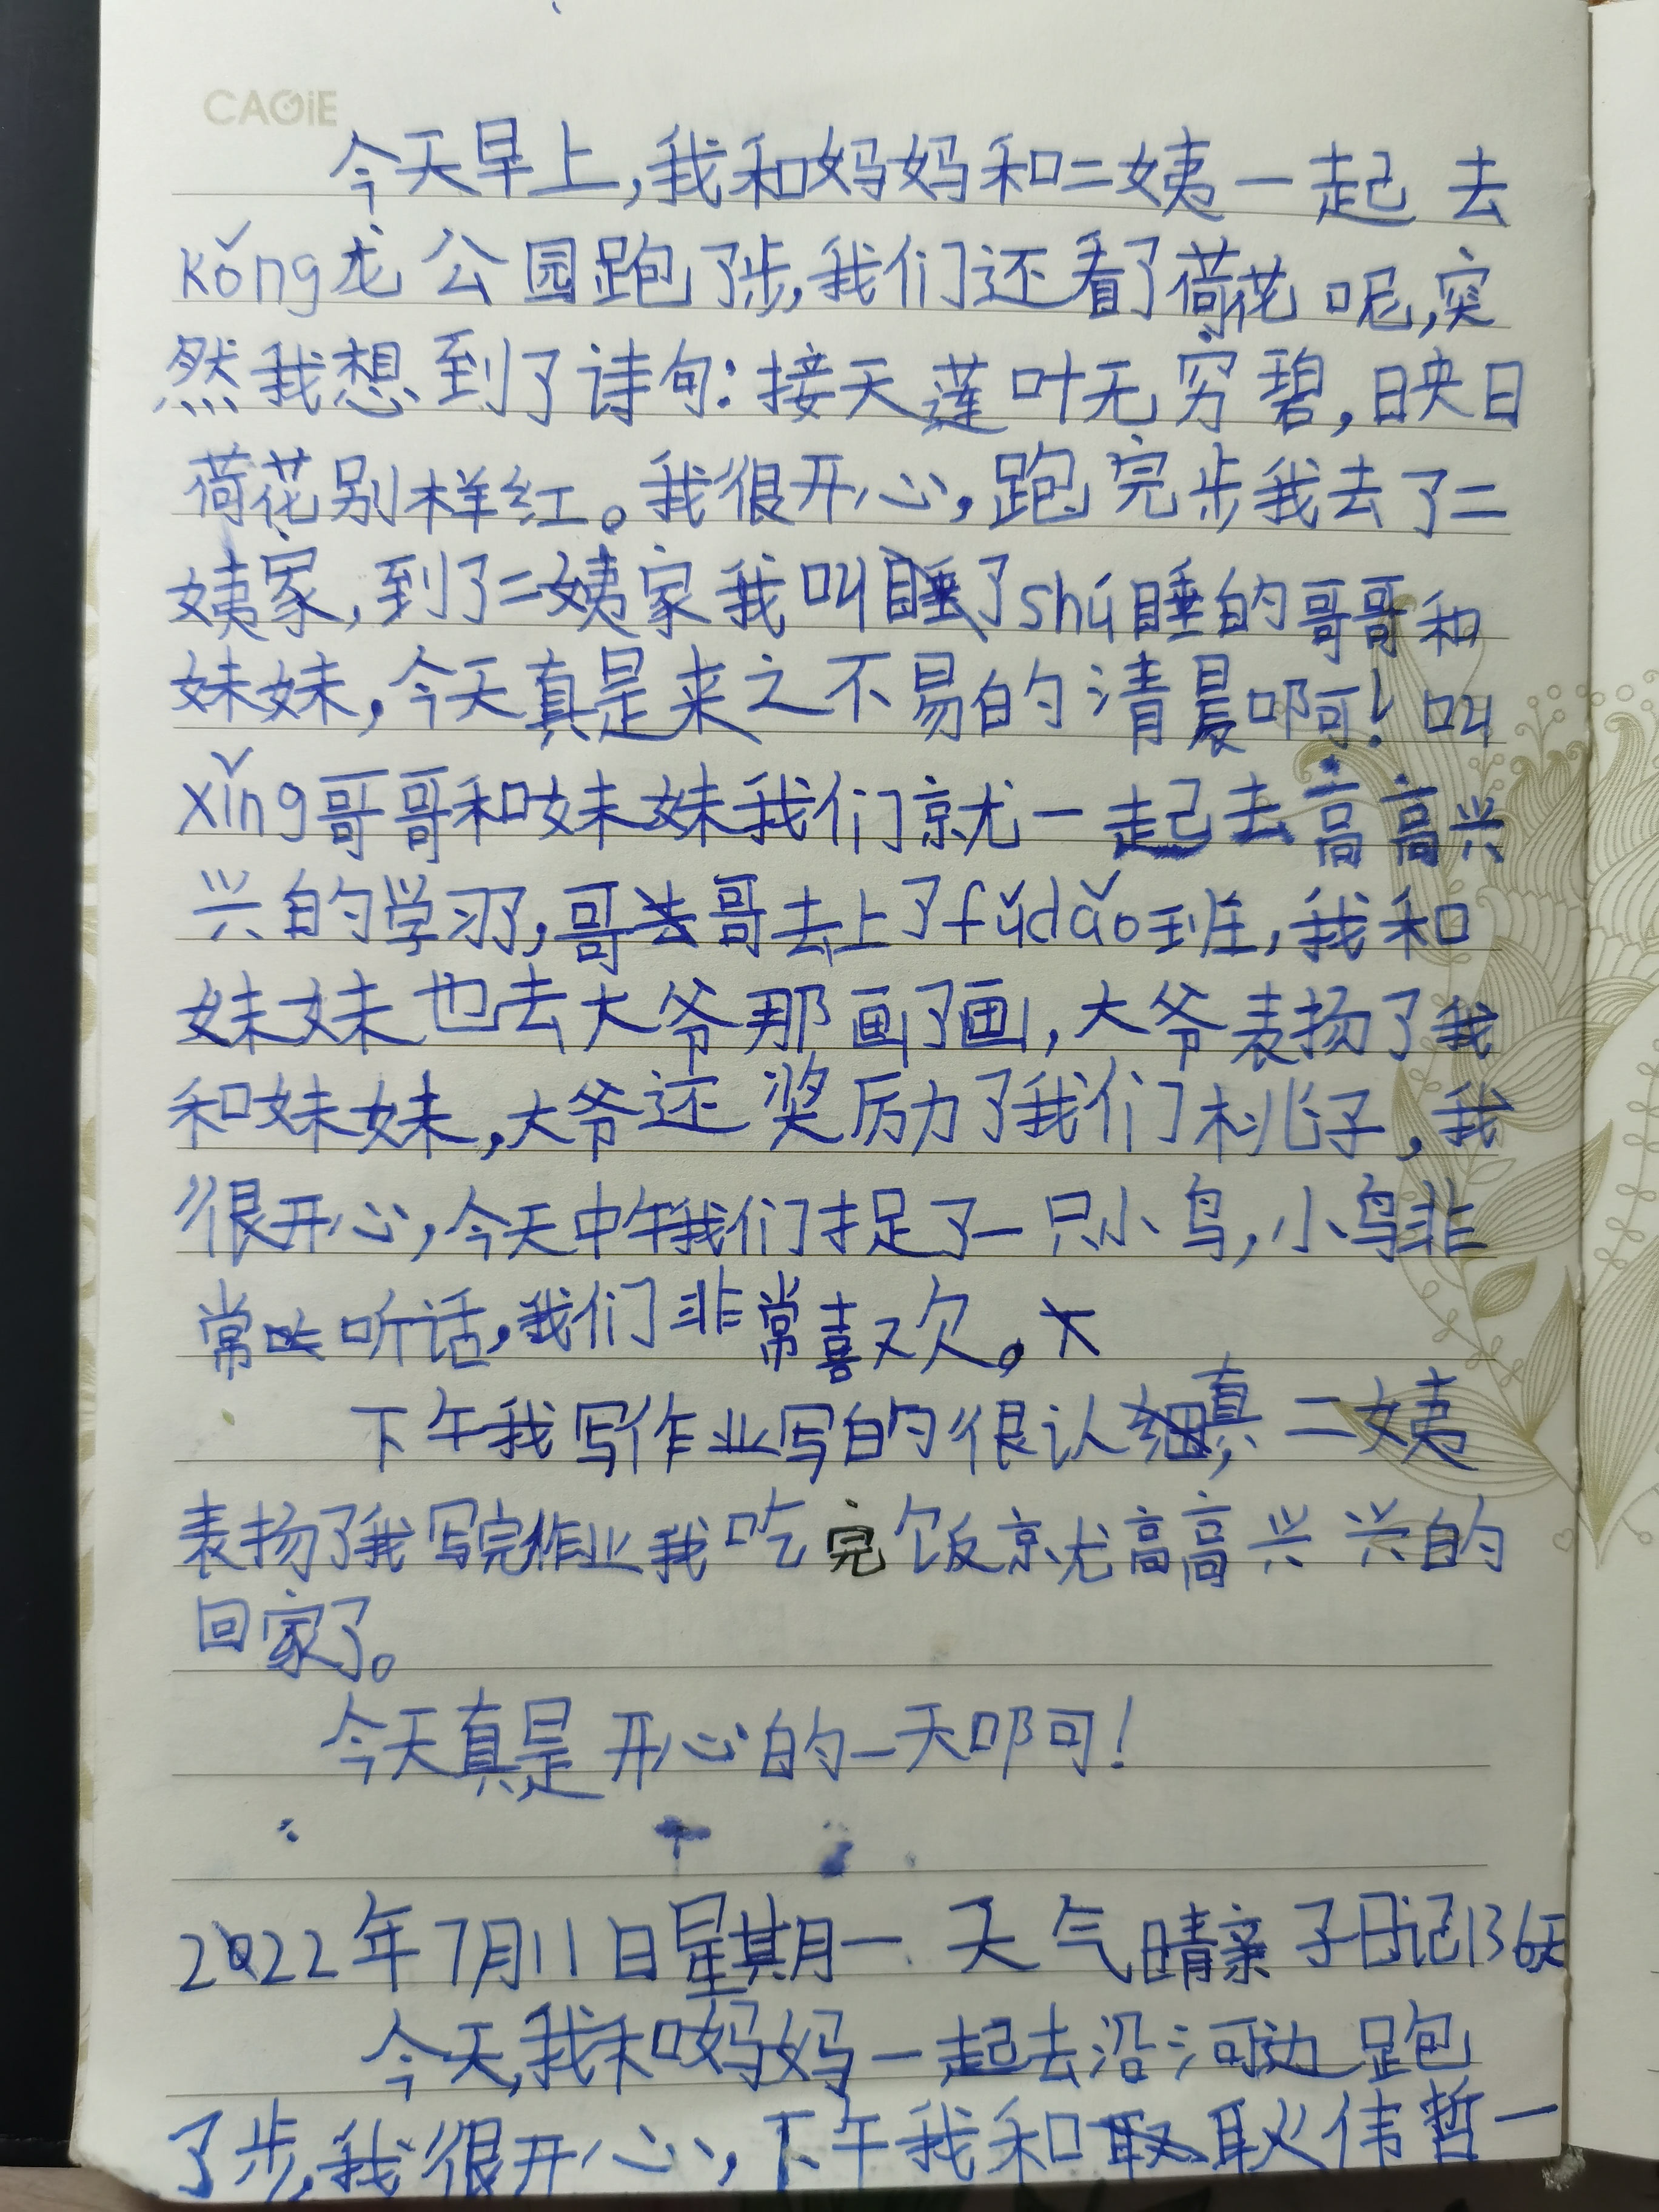 CAGiE
今天早上,我和妈妈和二姨一起去
kǒng龙公园跑了步,我们还看了荷花呢,突
然我想到了诗句:接天莲叶无穷碧,映日
荷花别样红。我很开心,跑完步我去了二
姨家,到了二姨家我叫了shú睡的哥哥和
妹妹,今天真是来之不易的清晨啊!叫
xǐng哥哥和妹妹我们就一起去高高兴
兴的学习了,哥哥去上了fǔdǎo班,我和
妹妹也去大爷那画了画,大爷表扬了我
和妹妹,大爷还奖励了我们桃子,我
很开心,今天中午我们捉了一只小鸟,小鸟非
常听话,我们非常喜欢。
下午我写作业写的很认真,二姨
表扬了我写完作业我吃完饭就高高兴兴的
回家了。
今天真是开心的一天啊!
2022年7月11日星期一 天气晴亲子日记136天
今天,我和妈妈一起去沿河边跑
了步,我很开心,下午我和耿伟哲一